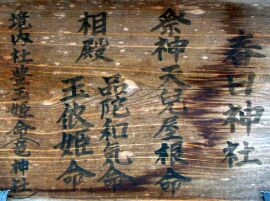 春日神社
祭神天兒屋根命
相殿
品陀和気命
玉依姫命
境内社豊玉姫命竜神社